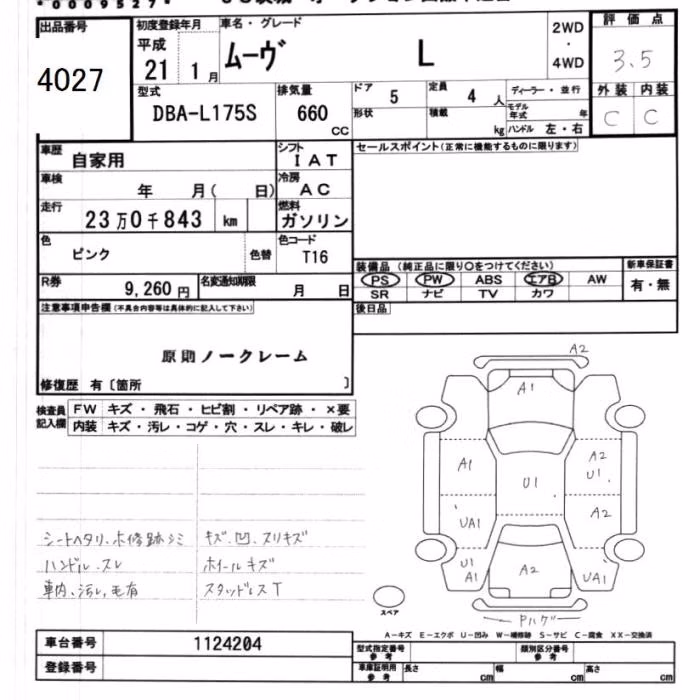 出品番号
4027
初度登録年月
平成
21 1月
車名・グレード
ムーヴ L
2WD
・
4WD
評価点
3.5
外装 内装
C C
型式
DBA-L175S
排気量
660
CC
ドア
5
定員
4人
形状
積載
kg
ディーラー・並行
モデル年式 年
ハンドル 左・右
車歴
自家用
シフト
IAT
車検
年 月( 日)
冷房
AC
走行
23万0千843 km
燃料
ガソリン
色
ピンク
色替
色コード
T16
R券
9,260円
名変通知期限
月 日
セールスポイント(正常に機能するものに限ります)
装備品 (純正品に限り〇をつけてください)
PS PW ABS エアB AW
SR ナビ TV カワ
新車保証書
有・無
後日品
注意事項申告欄(不具合内容等は具体的に記入して下さい)
原則ノークレーム
修復歴 有〔箇所 〕
検査員記入欄
FW キズ・飛石・ヒビ割・リペア跡・×要
内装 キズ・汚レ・コゲ・穴・スレ・キレ・破レ
シートヘタリ、木修跡シミ
ハンドルスレ
車内、汚レ、毛有
キズ、凹、スリキズ
ホイールキズ
スタッドレスT
A2
A1
A1
U1
A2
U1
UA1
A2
U1
A1
A2
UA1
Pハゲ
スペア
A-キズ E-エクボ U-凹み W-補修跡 S-サビ C-腐食 XX-交換済
車台番号
1124204
登録番号
型式指定番号
参考
類別区分番号
参考
車庫証明用
参考
長さ cm
幅 cm
高さ cm